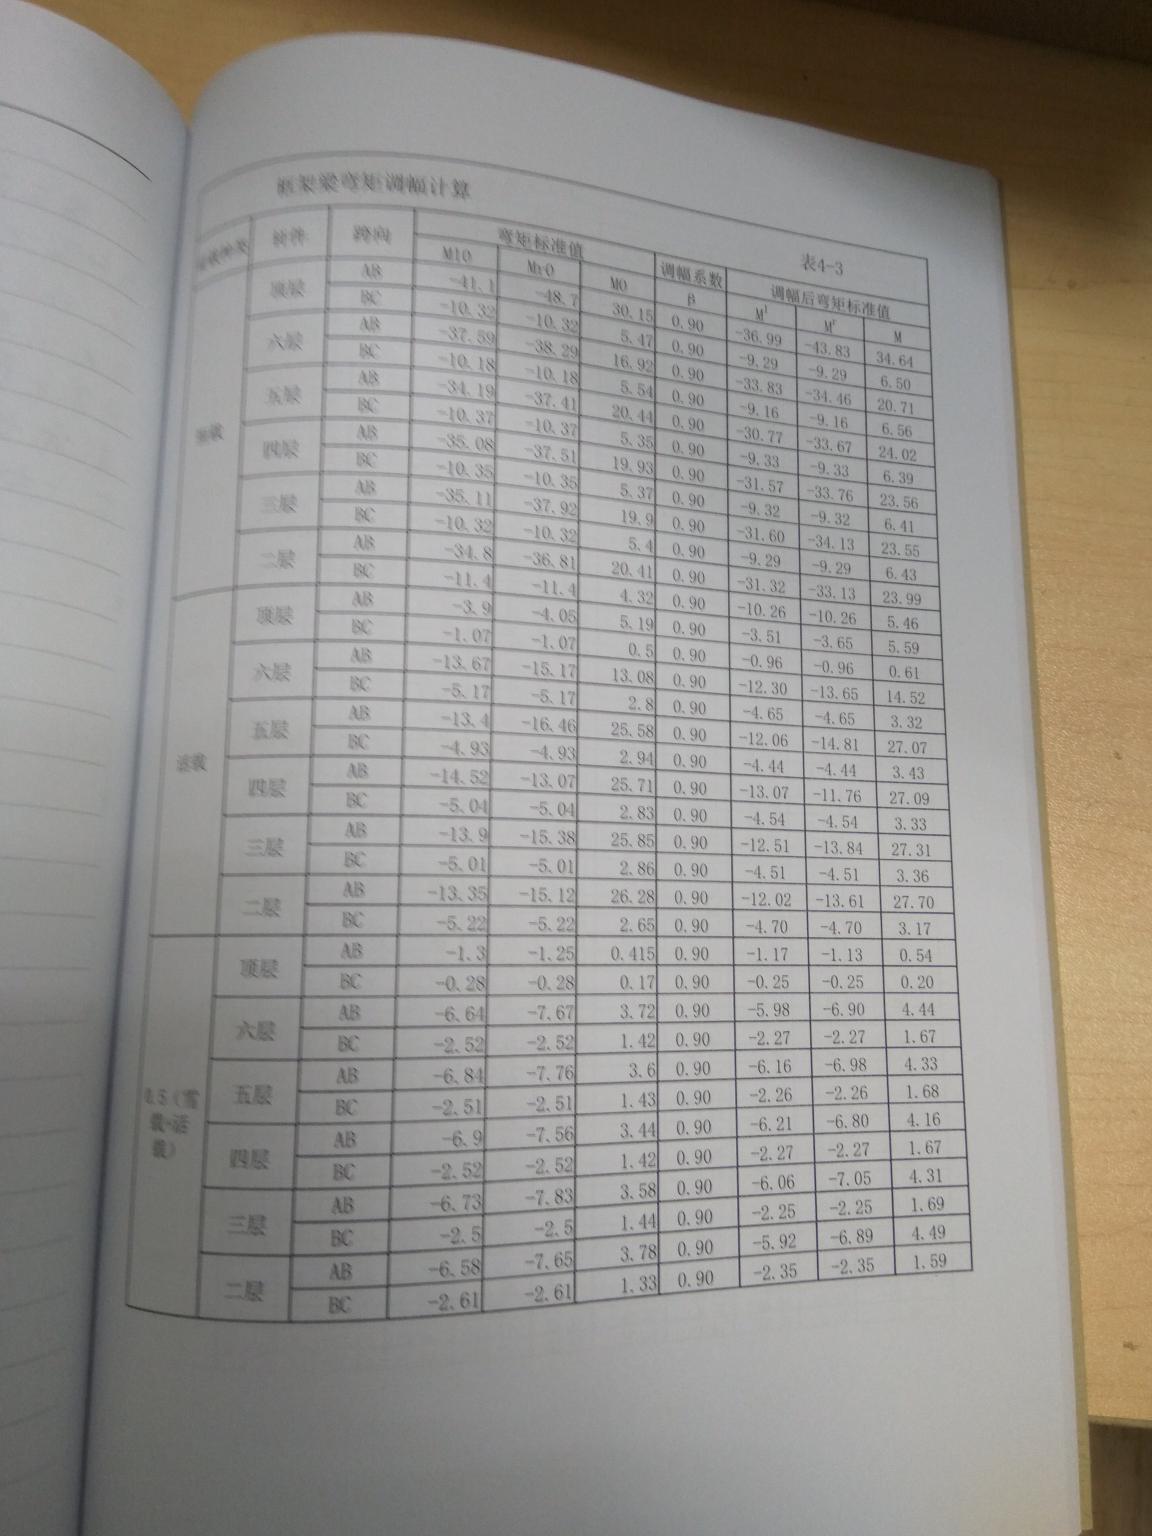 框架梁弯矩调幅计算
表4-3
荷载种类 杆件 跨向 弯矩标准值 调幅系数 调幅后弯矩标准值
Ml0 Mr0 M0 β M^l M^r M
恒载 顶层 AB -41.1 -48.7 30.15 0.90 -36.99 -43.83 34.64
BC -10.32 -10.32 5.47 0.90 -9.29 -9.29 6.50
六层 AB -37.59 -38.29 16.92 0.90 -33.83 -34.46 20.71
BC -10.18 -10.18 5.54 0.90 -9.16 -9.16 6.56
五层 AB -34.19 -37.41 20.44 0.90 -30.77 -33.67 24.02
BC -10.37 -10.37 5.35 0.90 -9.33 -9.33 6.39
四层 AB -35.08 -37.51 19.93 0.90 -31.57 -33.76 23.56
BC -10.35 -10.35 5.37 0.90 -9.32 -9.32 6.41
三层 AB -35.11 -37.92 19.9 0.90 -31.60 -34.13 23.55
BC -10.32 -10.32 5.4 0.90 -9.29 -9.29 6.43
二层 AB -34.8 -36.81 20.41 0.90 -31.32 -33.13 23.99
BC -11.4 -11.4 4.32 0.90 -10.26 -10.26 5.46
活载 顶层 AB -3.9 -4.05 5.19 0.90 -3.51 -3.65 5.59
BC -1.07 -1.07 0.5 0.90 -0.96 -0.96 0.61
六层 AB -13.67 -15.17 13.08 0.90 -12.30 -13.65 14.52
BC -5.17 -5.17 2.8 0.90 -4.65 -4.65 3.32
五层 AB -13.4 -16.46 25.58 0.90 -12.06 -14.81 27.07
BC -4.93 -4.93 2.94 0.90 -4.44 -4.44 3.43
四层 AB -14.52 -13.07 25.71 0.90 -13.07 -11.76 27.09
BC -5.04 -5.04 2.83 0.90 -4.54 -4.54 3.33
三层 AB -13.9 -15.38 25.85 0.90 -12.51 -13.84 27.31
BC -5.01 -5.01 2.86 0.90 -4.51 -4.51 3.36
二层 AB -13.35 -15.12 26.28 0.90 -12.02 -13.61 27.70
BC -5.22 -5.22 2.65 0.90 -4.70 -4.70 3.17
0.5（雪载+活载） 顶层 AB -1.3 -1.25 0.415 0.90 -1.17 -1.13 0.54
BC -0.28 -0.28 0.17 0.90 -0.25 -0.25 0.20
六层 AB -6.64 -7.67 3.72 0.90 -5.98 -6.90 4.44
BC -2.52 -2.52 1.42 0.90 -2.27 -2.27 1.67
五层 AB -6.84 -7.76 3.6 0.90 -6.16 -6.98 4.33
BC -2.51 -2.51 1.43 0.90 -2.26 -2.26 1.68
四层 AB -6.9 -7.56 3.44 0.90 -6.21 -6.80 4.16
BC -2.52 -2.52 1.42 0.90 -2.27 -2.27 1.67
三层 AB -6.73 -7.83 3.58 0.90 -6.06 -7.05 4.31
BC -2.5 -2.5 1.44 0.90 -2.25 -2.25 1.69
二层 AB -6.58 -7.65 3.78 0.90 -5.92 -6.89 4.49
BC -2.61 -2.61 1.33 0.90 -2.35 -2.35 1.59